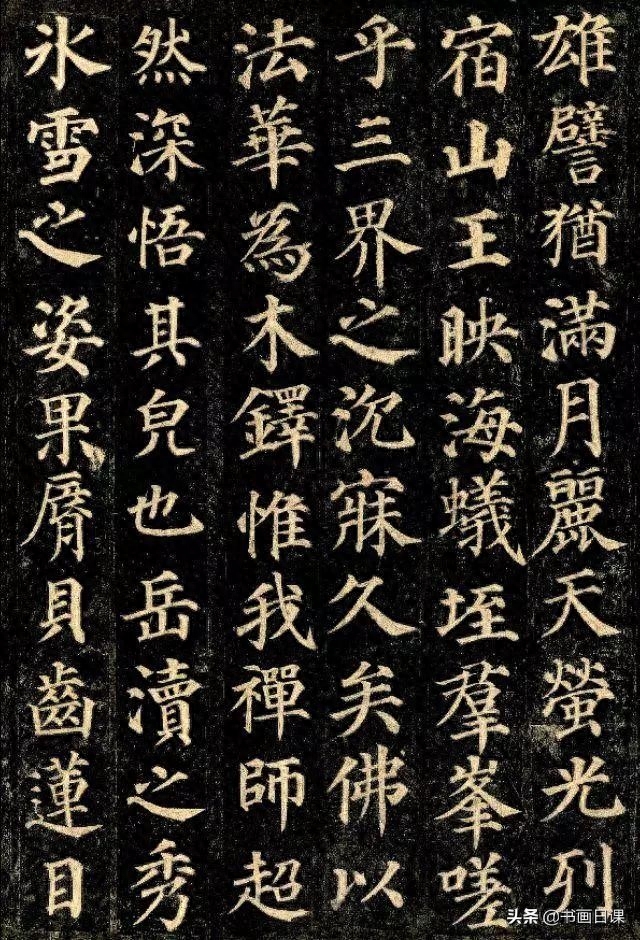 雄譬猶滿月麗天螢光列
宿山王映海蟻垤羣峯嗟
乎三界之沉寐久矣佛以
法華為木鐸惟我禪師超
然深悟其皃也岳瀆之秀
氷雪之姿果脣貝齒蓮目
头条 @书画日课